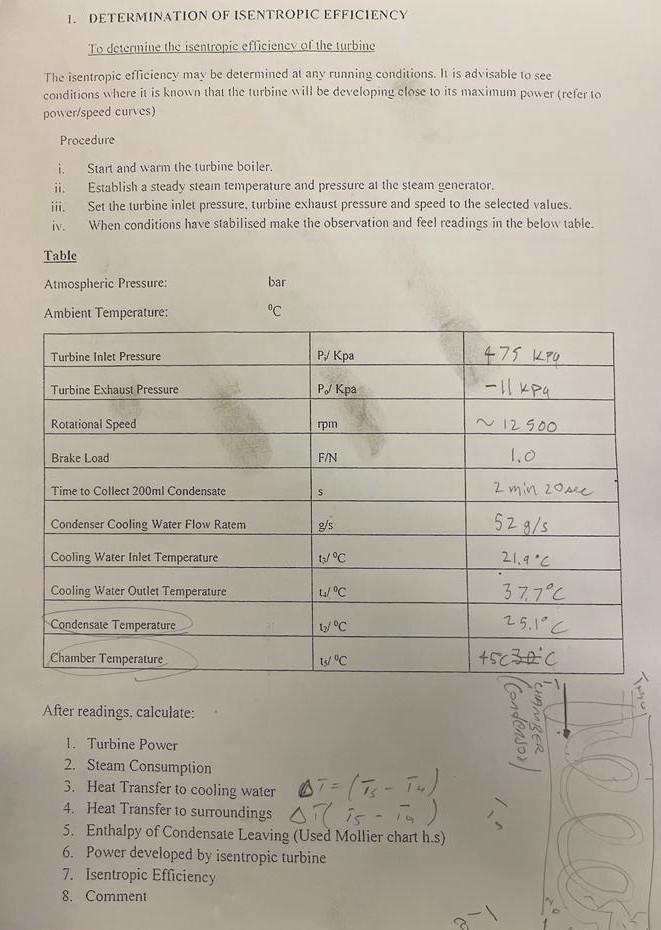 1. DETERMINATION OF ISENTROPIC EFFICIENCY
To determine the isentropic efficiency of the turbine
The isentropic efficiency may be determined at any running conditions. It is advisable to see
conditions where it is known that the turbine will be developing close to its maximum power (refer to
power/speed curves)
Procedure
i. Start and warm the turbine boiler.
ii. Establish a steady steam temperature and pressure at the steam generator.
iii. Set the turbine inlet pressure, turbine exhaust pressure and speed to the selected values.
iv. When conditions have stabilised make the observation and feel readings in the below table.
Table
Atmospheric Pressure: bar
Ambient Temperature: ⁰C
Turbine Inlet Pressure Pᵢ/ Kpa 475 kPa
Turbine Exhaust Pressure Pₒ/ Kpa -11 kPa
Rotational Speed rpm ~ 12 500
Brake Load F/N 1.0
Time to Collect 200ml Condensate s 2 min 20sec
Condenser Cooling Water Flow Ratem g/s 52 g/s
Cooling Water Inlet Temperature t₃/ ⁰C 21.9°C
Cooling Water Outlet Temperature t₄/ ⁰C 37.7°C
Condensate Temperature t₂/ ⁰C 25.1°C
Chamber Temperature t₅/ ⁰C
After readings, calculate:
1. Turbine Power
2. Steam Consumption
3. Heat Transfer to cooling water ΔT = (T₅ - T₄)
4. Heat Transfer to surroundings ΔT( T₅ - T₄ )
5. Enthalpy of Condensate Leaving (Used Mollier chart h.s)
6. Power developed by isentropic turbine
7. Isentropic Efficiency
8. Comment